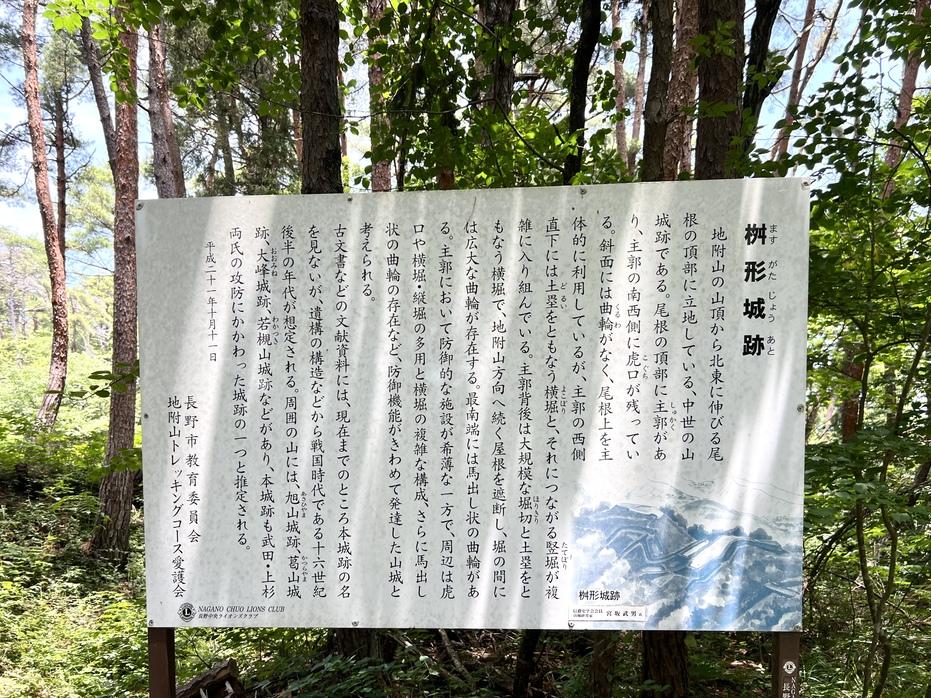 桝形城跡
ますがたじょうあと
地附山の山頂から北東に伸びる尾
根の頂部に立地している、中世の山
城跡である。尾根の頂部に主郭があ
り、主郭の南西側に虎口が残ってい
る。斜面には曲輪がなく、尾根上を主
体的に利用しているが、主郭の西側
直下には土塁をともなう横堀と、それにつながる竪堀が複
雑に入り組んでいる。主郭背後は大規模な堀切と土塁をと
もなう横堀で、地附山方向へ続く屋根を遮断し、堀の間に
は広大な曲輪が存在する。最南端には馬出し状の曲輪があ
る。主郭において防御的な施設が希薄な一方で、周辺は虎
口や横堀・縦堀の多用と横堀の複雑な構成、さらに馬出し
状の曲輪の存在など、防御機能がきわめて発達した山城と
考えられる。
古文書などの文献資料には、現在までのところ本城跡の名
を見ないが、遺構の構造などから戦国時代である十六世紀
後半の年代が想定される。周囲の山には、旭山城跡、葛山城
跡、大峰城跡、若槻山城跡などがあり、本城跡も武田・上杉
両氏の攻防にかかわった城跡の一つと推定される。
平成二十一年十月十一日
長野市教育委員会
地附山トレッキングコース愛護会
NAGANO CHUO LIONS CLUB
長野中央ライオンズクラブ
桝形城跡
宮坂武男